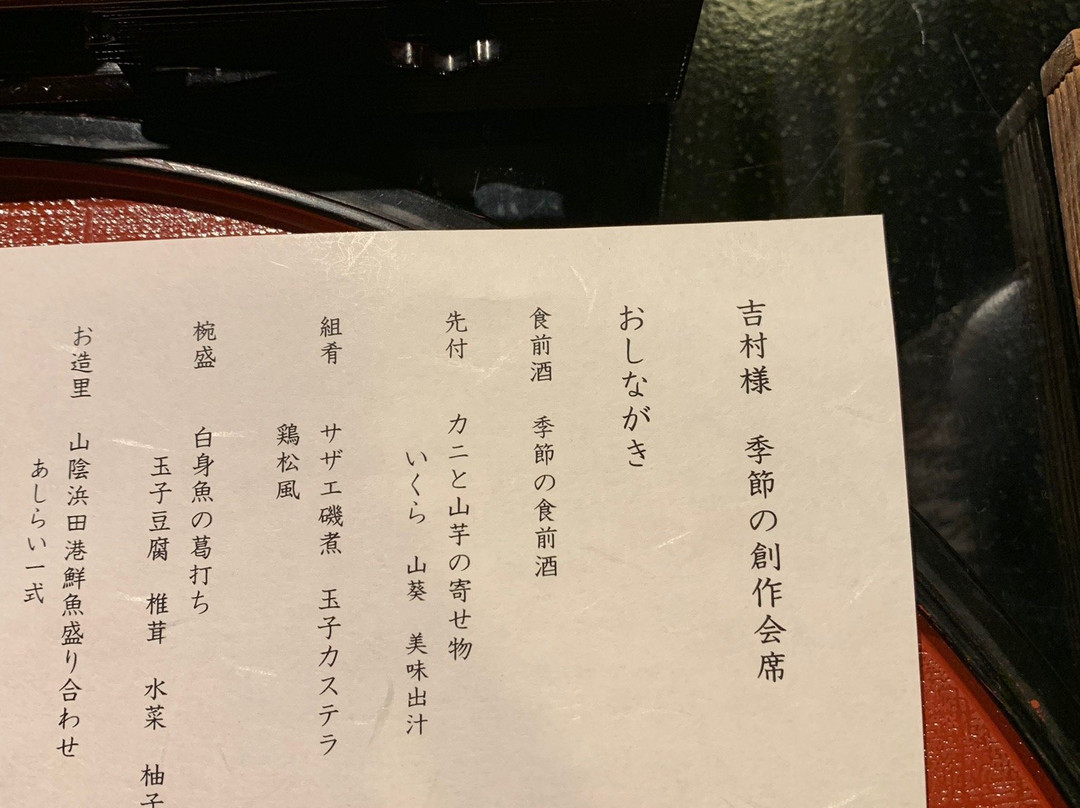 吉村様　季節の創作会席
おしながき
食前酒　季節の食前酒
先付　カニと山芋の寄せ物
いくら　山葵　美味出汁
組肴　サザエ磯煮　玉子カステラ
鶏松風
椀盛　白身魚の葛打ち
玉子豆腐　椎茸　水菜　柚子
お造里　山陰浜田港鮮魚盛り合わせ
あしらい一式